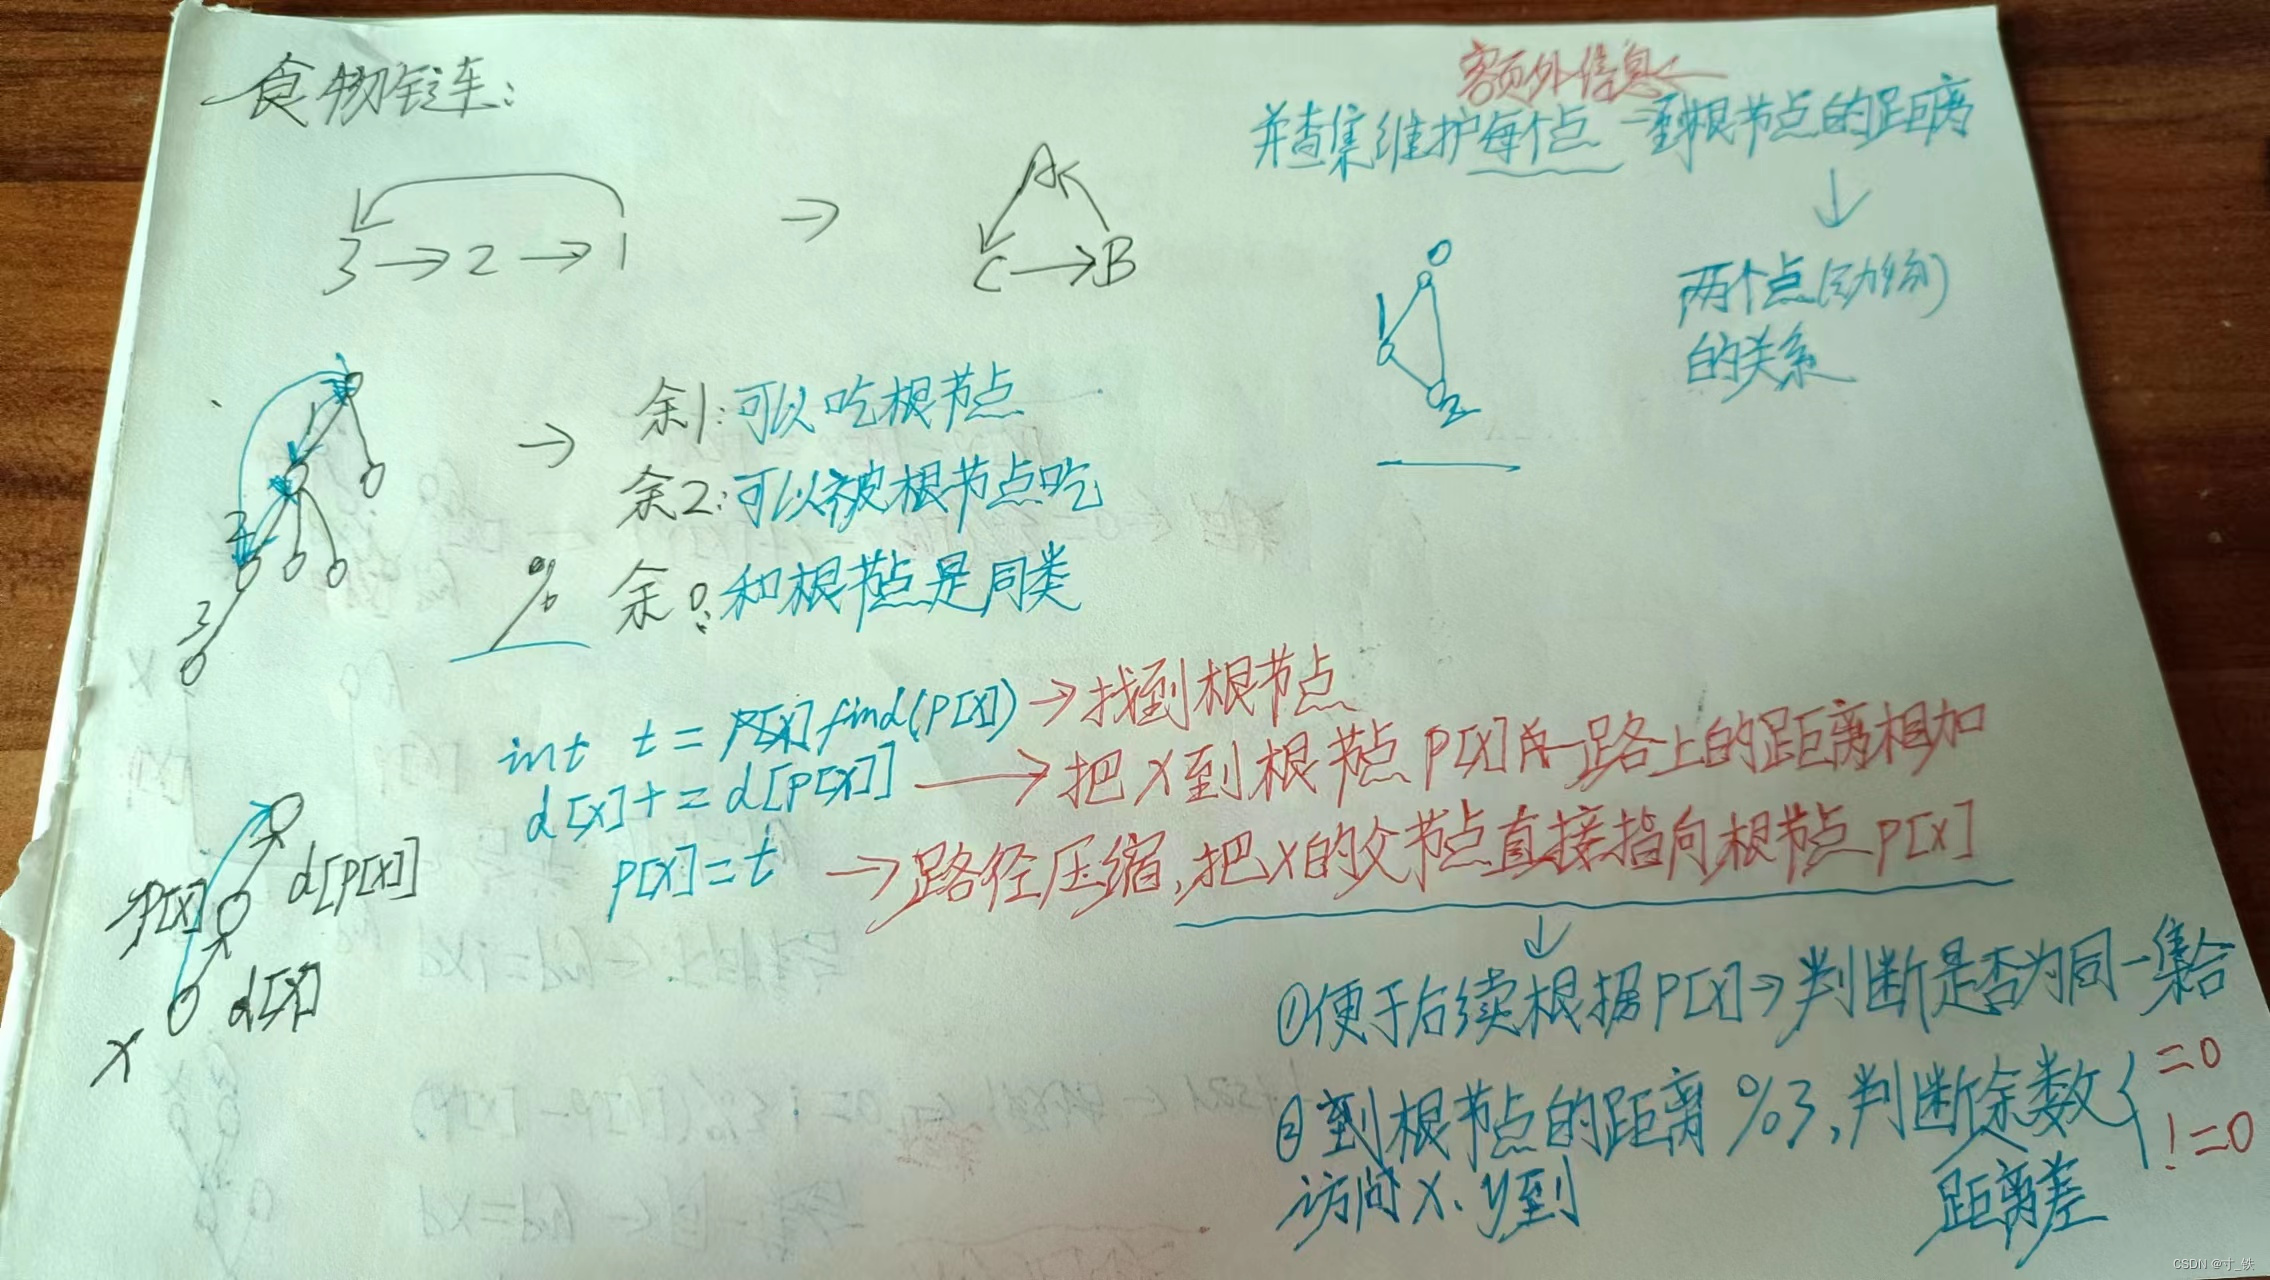 食物链:
额外信息
并查集维护每个点到根节点的距离
3 → 2 → 1
→
A
C → B
0
1
2
两个点(动物)
的关系
1
2
3
→ 余1:可以吃根节点
余2:可以被根节点吃
% 余0:和根节点是同类
int t = find(p[x]) → 找到根节点
d[x] += d[p[x]] → 把x到根节点p[x]一路上的距离相加
p[x] = t → 路径压缩,把x的父节点直接指向根节点p[x]
p[x]
d[p[x]]
d[x]
x
①便于后续根据p[x]→判断是否为同一集合
②到根节点的距离%3,判断余数 { =0
!=0
访问x、y到
距离差
CSDN @寸_铁